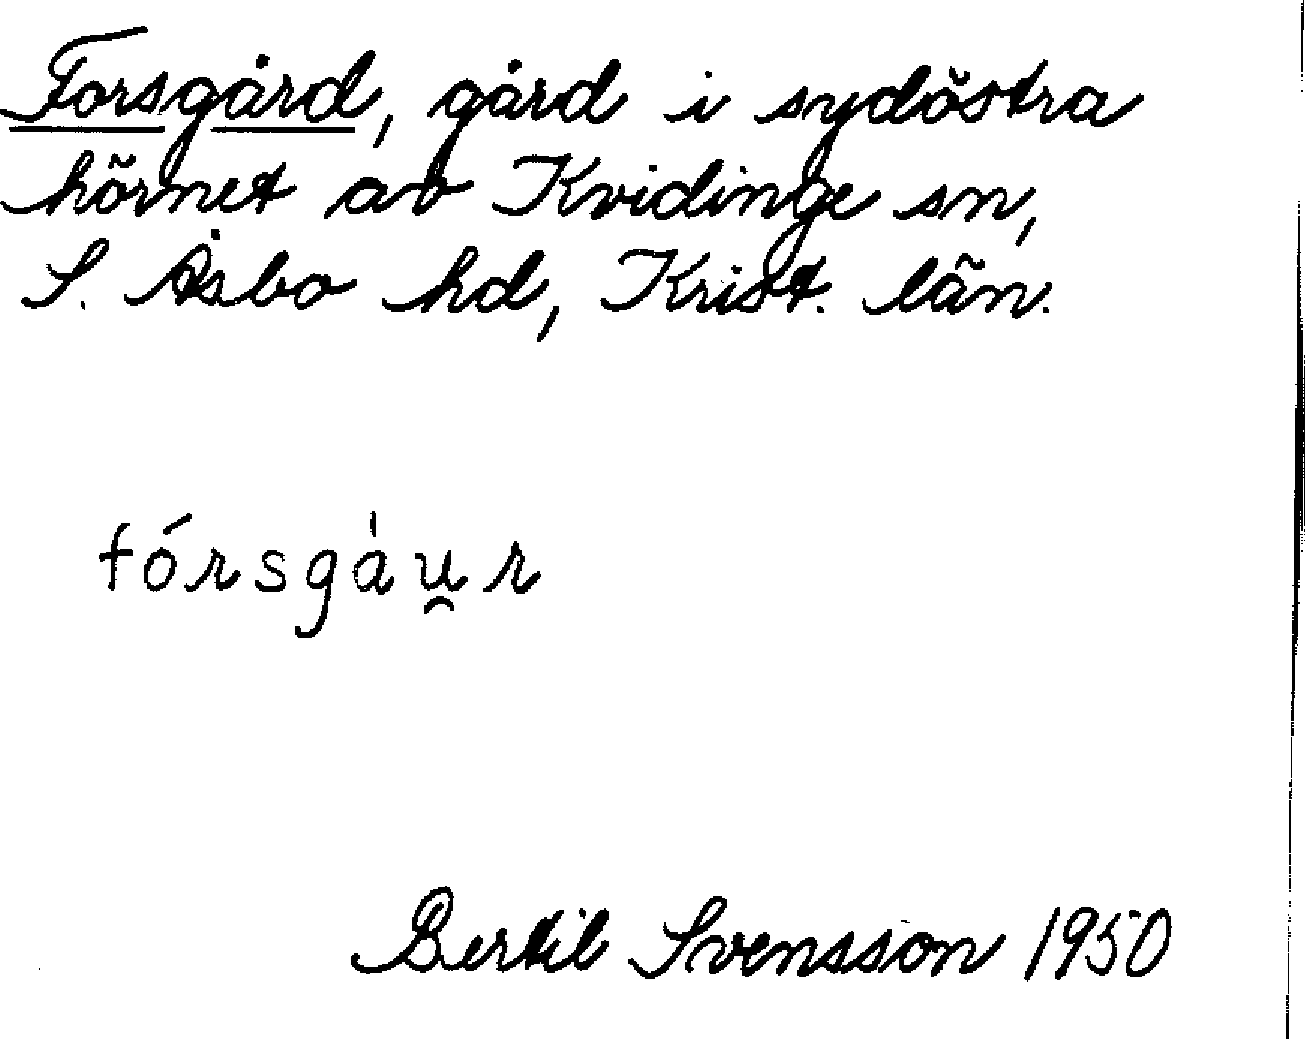 Forsgård, gård i sydöstra
hörnet av Kvidinge sn,
S. Åsbo hd, Krist. län.
fórsgàu̯r
Bertil Svensson 1950